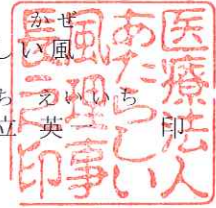 かぜ
しい風
ち えいいち
立 英一 印
医療法人
あたらしい
風理事
長之印